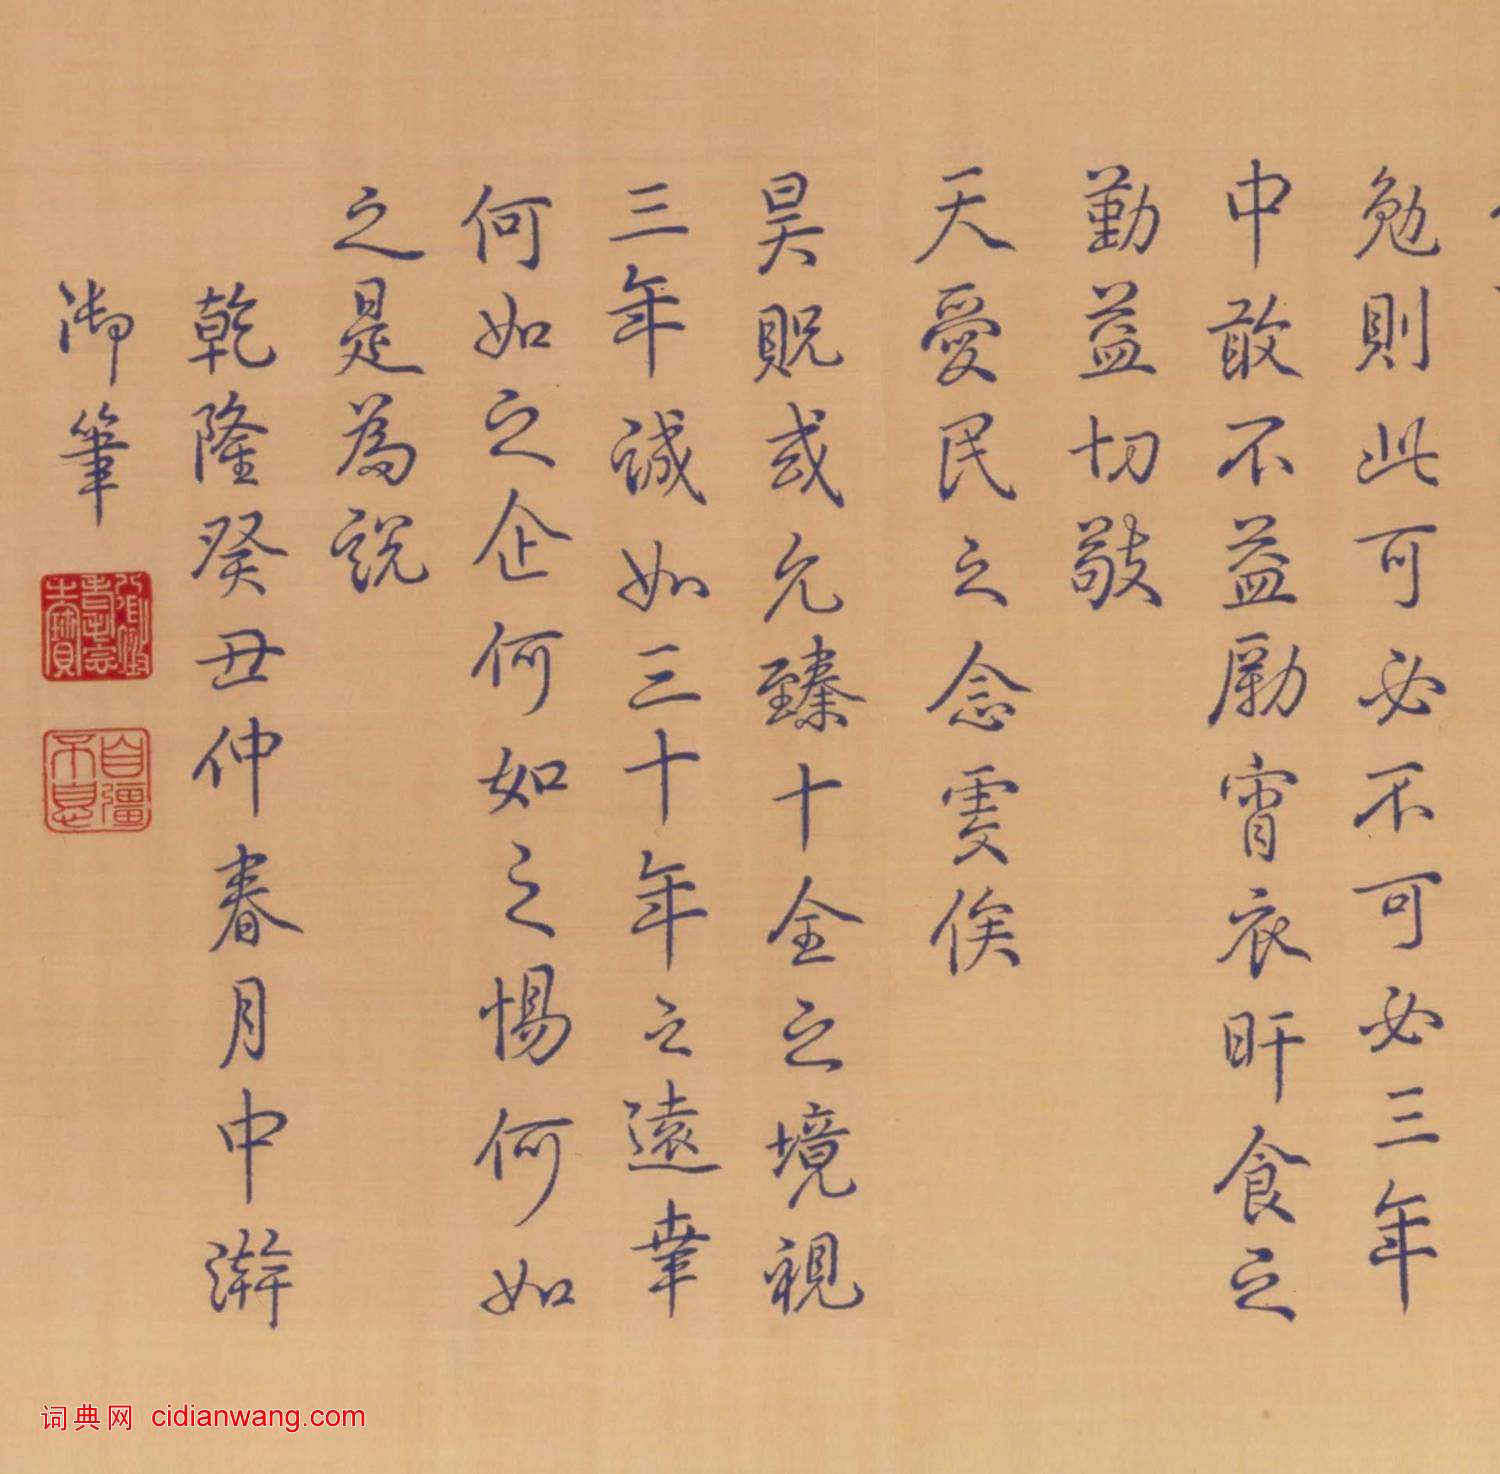 勉則此可必不可必三年
中敢不益勵宵衣旰食之
勤益切敬
天愛民之念虔俟
昊貺或允臻十全之境視
三年誠如三十年之遠幸
何如之企何如之惕何如
之是為說
乾隆癸丑仲春月中澣
御筆
八徵耄念之寶
自彊不息
词典网 cidianwang.com